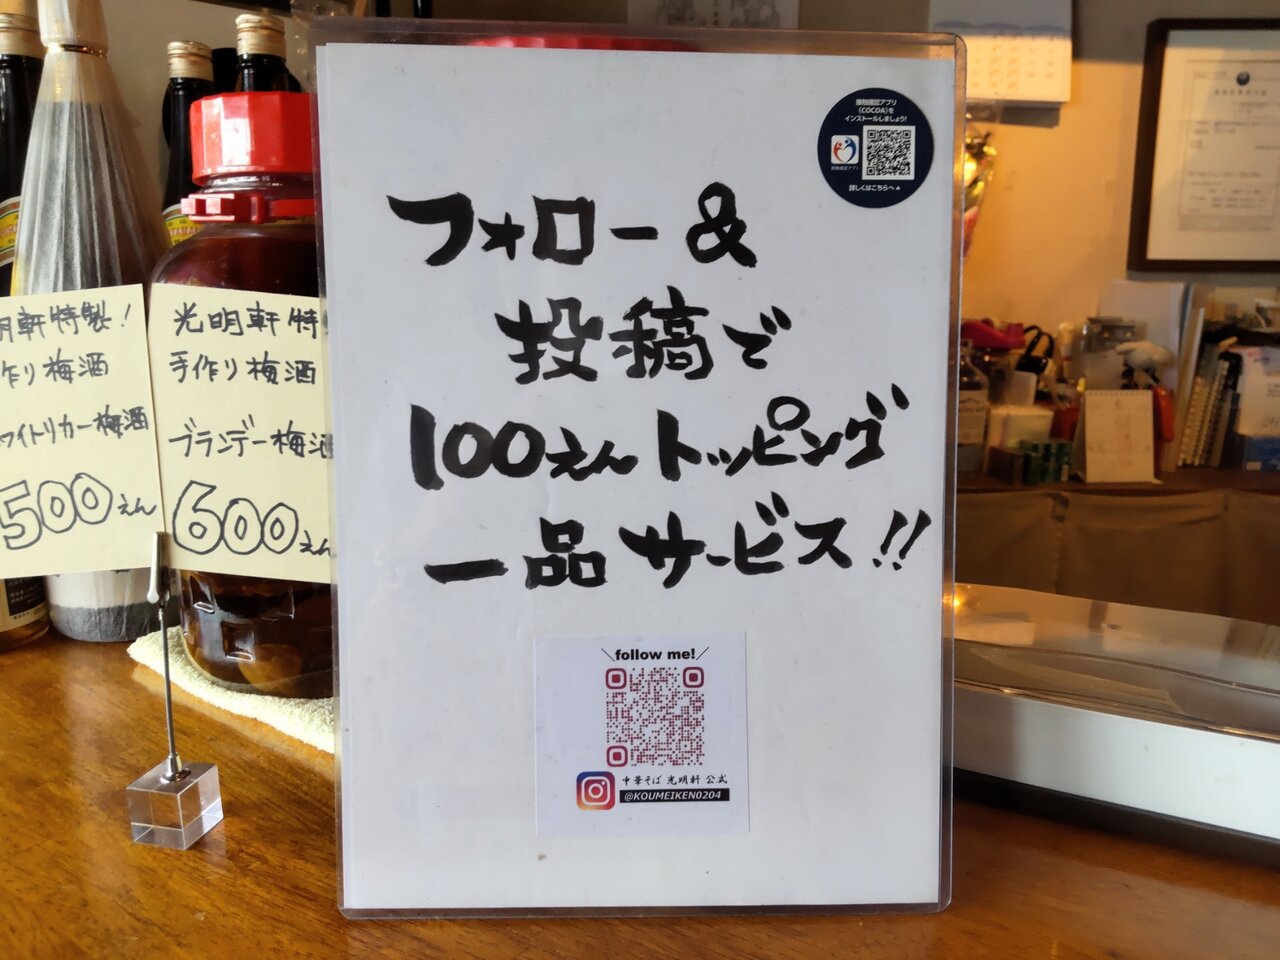 接触確認アプリ
(COCOA)を
インストールしましょう!
接触確認アプリ
詳しくはこちらへ▲
フォロー&
投稿で
100えんトッピング
一品サービス!!
\follow me!/
中華そば 光明軒 公式
@KOUMEIKEN0204
明軒特製!
作り梅酒
ワイトリカー梅酒
500えん
光明軒特
手作り梅酒
ブランデー梅酒
600えん